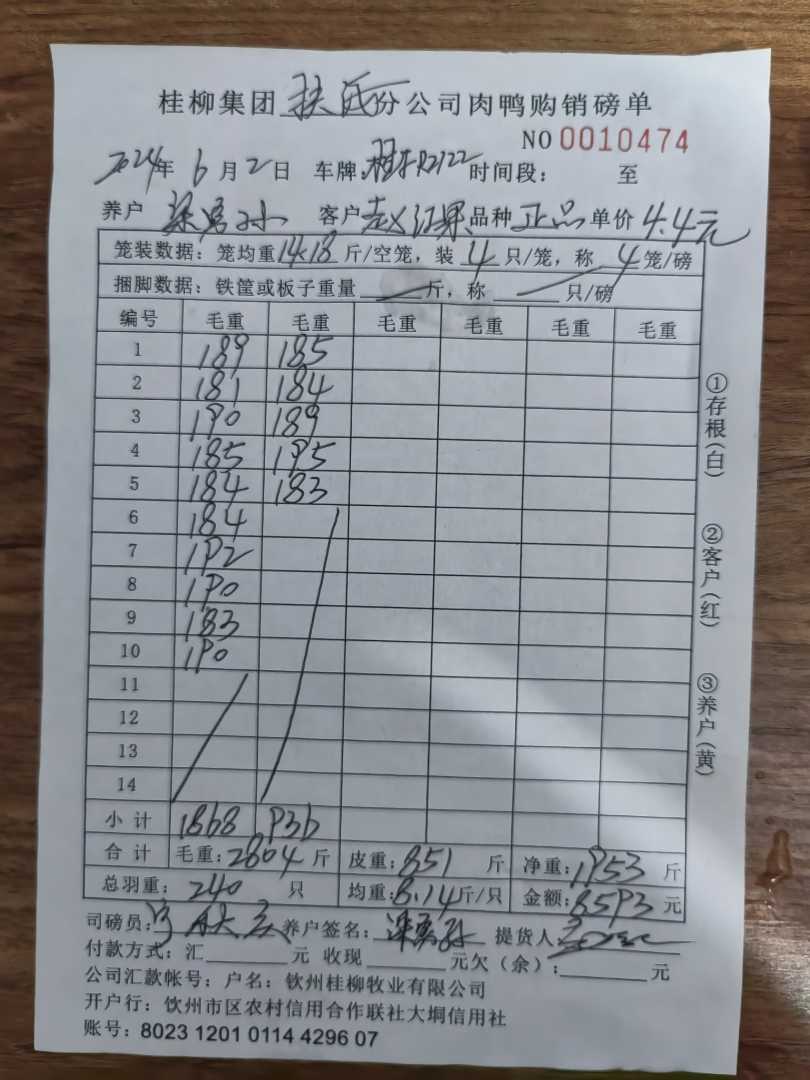 桂柳集团扶氏份公司肉鸭购销磅单
NO 0010474
2024年6月2日 车牌:桂 R2122 时间段: 至
养户 梁 孙 客户 赵江果 品种 正品 单价 4.4元
笼装数据:笼均重14.18斤/空笼,装4只/笼,称4笼/磅
捆脚数据:铁筐或板子重量 斤,称 只/磅
编号 毛重 毛重 毛重 毛重 毛重 毛重
1 189 185
2 181 184
3 190 189
4 185 195
5 184 183
6 184
7 192
8 190
9 183
10 190
11
12
13
14
小计 1868 936
合计 毛重:2804斤 皮重:851斤 净重:1953斤
总羽重:240只 均重:8.14斤/只 金额:8593元
司磅员: 养户签名:梁 孙 提货人:
付款方式:汇 元 收现 元欠(余): 元
公司汇款帐号:户名:钦州桂柳牧业有限公司
开户行:钦州市区农村信用合作联社大垌信用社
账号:8023 1201 0114 4296 07
①存根(白)
②客户(红)
③养户(黄)